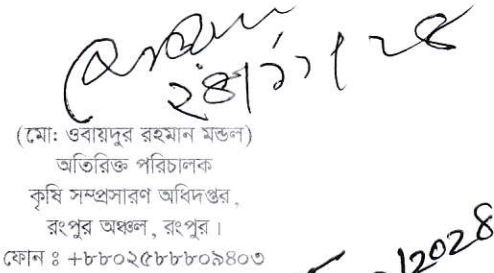 ২৪/১১/২৪
(মো: ওবায়দুর রহমান মন্ডল)
অতিরিক্ত পরিচালক
কৃষি সম্প্রসারণ অধিদপ্তর,
রংপুর অঞ্চল, রংপুর।
ফোন ঃ +৮৮০২৫৮৮৮০৯৪০৩
/2028